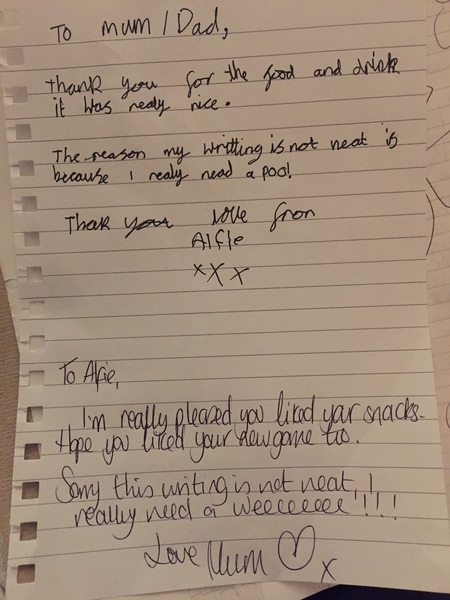 To mum / Dad,
thank you for the food and drink
it was realy nice.
The reason my writting is not neat is
because I realy need a poo!
Thank you love from
Alfie
xxx
To Alfie,
I'm really pleased you liked your snacks.
Hope you liked your new game too.
Sorry this writing is not neat, I
really need a weeeeeeee!!!!
Love Mum ♡ x